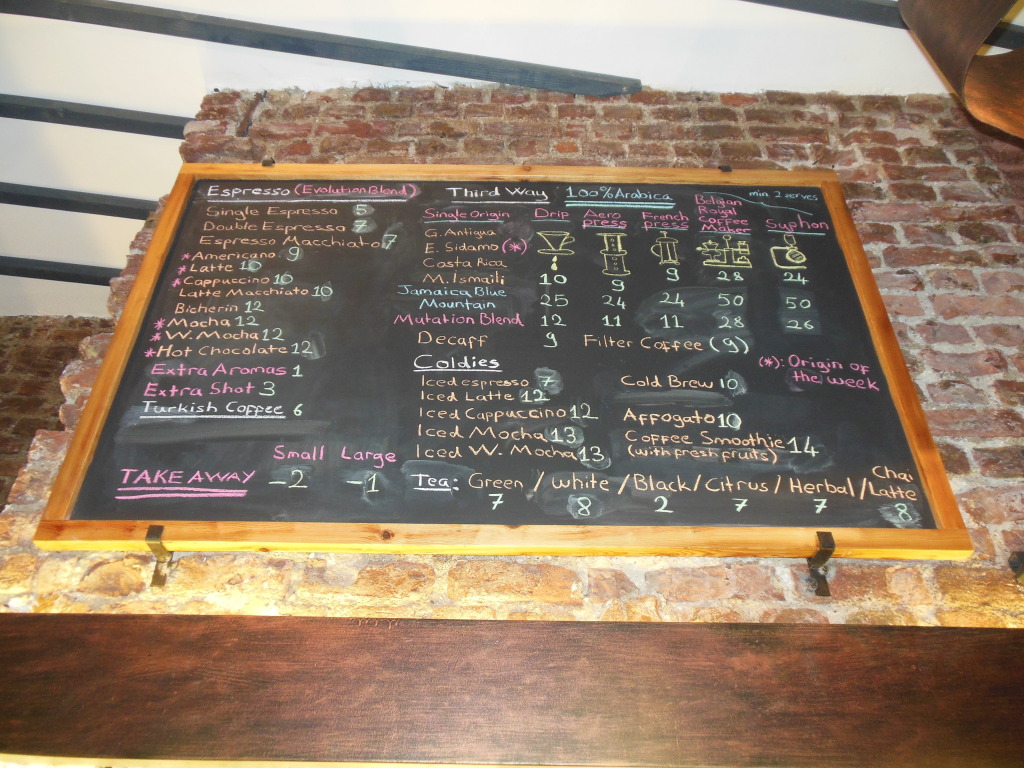 Espresso (Evolution Blend)
Single Espresso 5
Double Espresso 7
Espresso Macchiato 7
*Americano: 9
*Latte 10
*Cappuccino 10
Latte Macchiato 10
Bicherin 12
*Mocha 12
*W. Mocha 12
*Hot Chocolate 12
Extra Aromas 1
Extra Shot 3
Turkish Coffee 6
Small Large
TAKE AWAY -2 -1
Third Way 100% Arabica min. 2 serves
Single Origin Drip Aero press French press Belgian Royal Coffee Maker Syphon
G. Antigua
E. Sidamo (*)
Costa Rica
M. Ismaili 10 9 9 28 24
Jamaica Blue
Mountain 25 24 24 50 50
Mutation Blend 12 11 11 28 26
Decaff 9 Filter Coffee (9)
(*): Origin of
the week
Coldies
Iced espresso 7 Cold Brew 10
Iced Latte 12
Iced Cappuccino 12 Affogato 10
Iced Mocha 13 Coffee Smoothie 14
Iced W. Mocha 13 (with fresh fruits)
Tea: Green / white / Black / Citrus / Herbal / Chai Latte
7 8 2 7 7 8